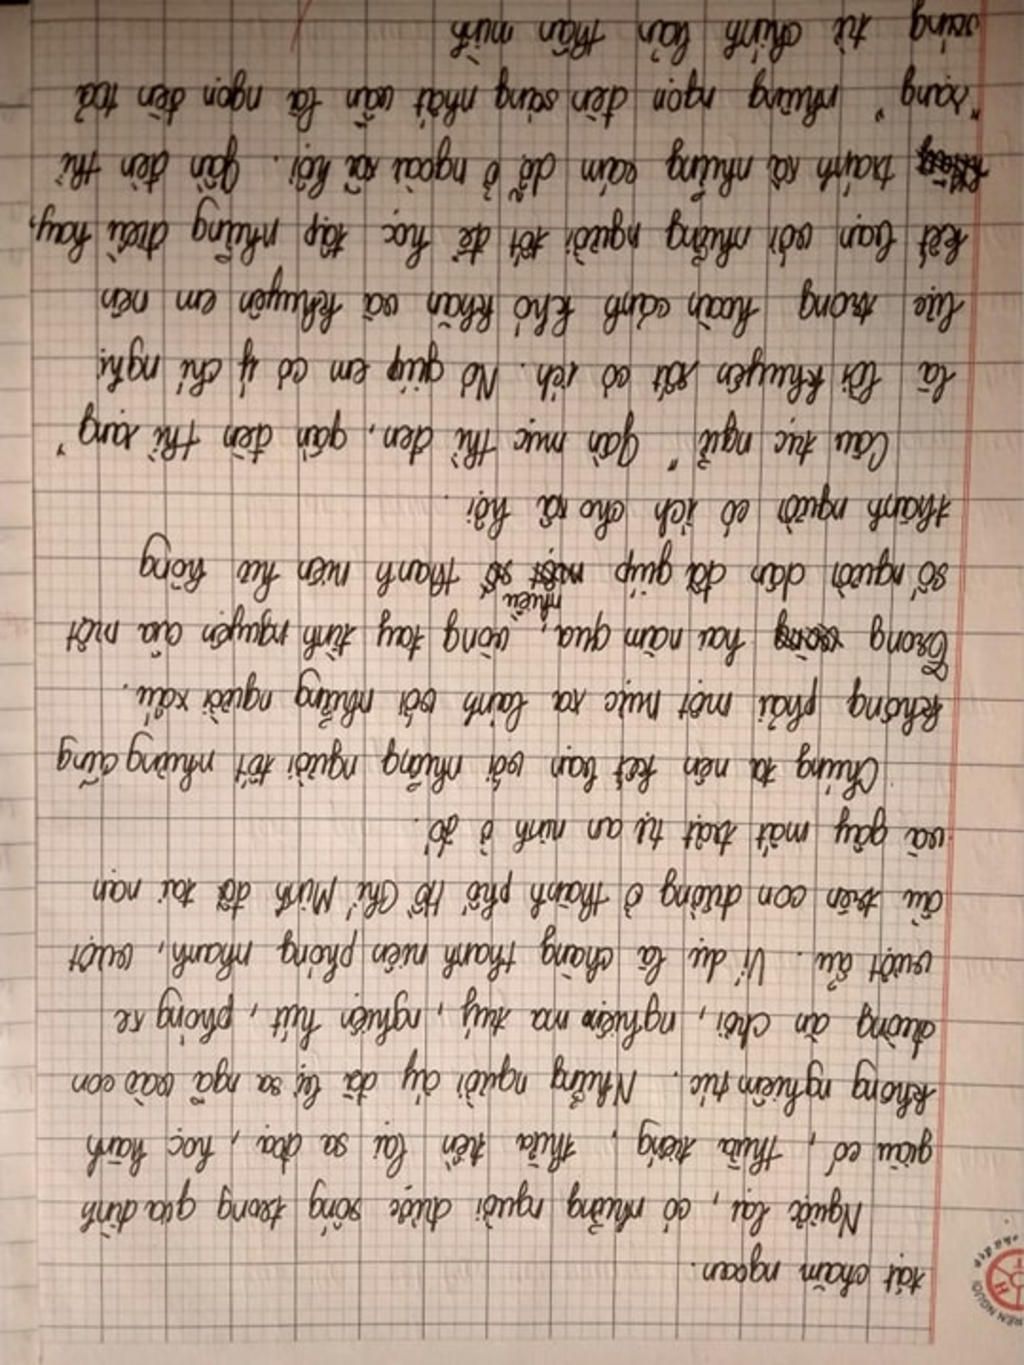 rất chăm ngoan.
Ngược lại, có những người được sống trong gia đình
giàu có, thừa tiếng, thừa tiền lại sa đọa, học hành
không nghiêm túc. Những người ấy đã bị sa ngã vào con
đường ăn chơi, nghiện ma tuý, nghiện hút, phóng xe
vượt ẩu. Ví dụ là chàng thanh niên phóng nhanh, vượt
ẩu trên con đường ở thành phố Hồ Chí Minh đã tai nạn
và gây mất trật tự an ninh ở đó.
Chúng ta nên kết bạn với những người tốt nhưng cũng
không phải một mực xa lánh với những người xấu.
Trong hai năm qua, nhiều vòng tay tình nguyện của một
số người dân đã giúp một số thanh niên hư hỏng
thành người có ích cho xã hội.
Câu tục ngữ "Gần mực thì đen, gần đèn thì rạng"
là lời khuyên rất có ích. Nó giúp em có ý chí nghị
lực trong hoàn cảnh khó khăn và khuyên em nên
kết bạn với những người tốt để học tập những điều hay,
tránh xa những cám dỗ ở ngoài xã hội. Gần đèn thì
"rạng" nhưng ngọn đèn sáng nhất vẫn là ngọn đèn toả
sáng từ chính bản thân mình